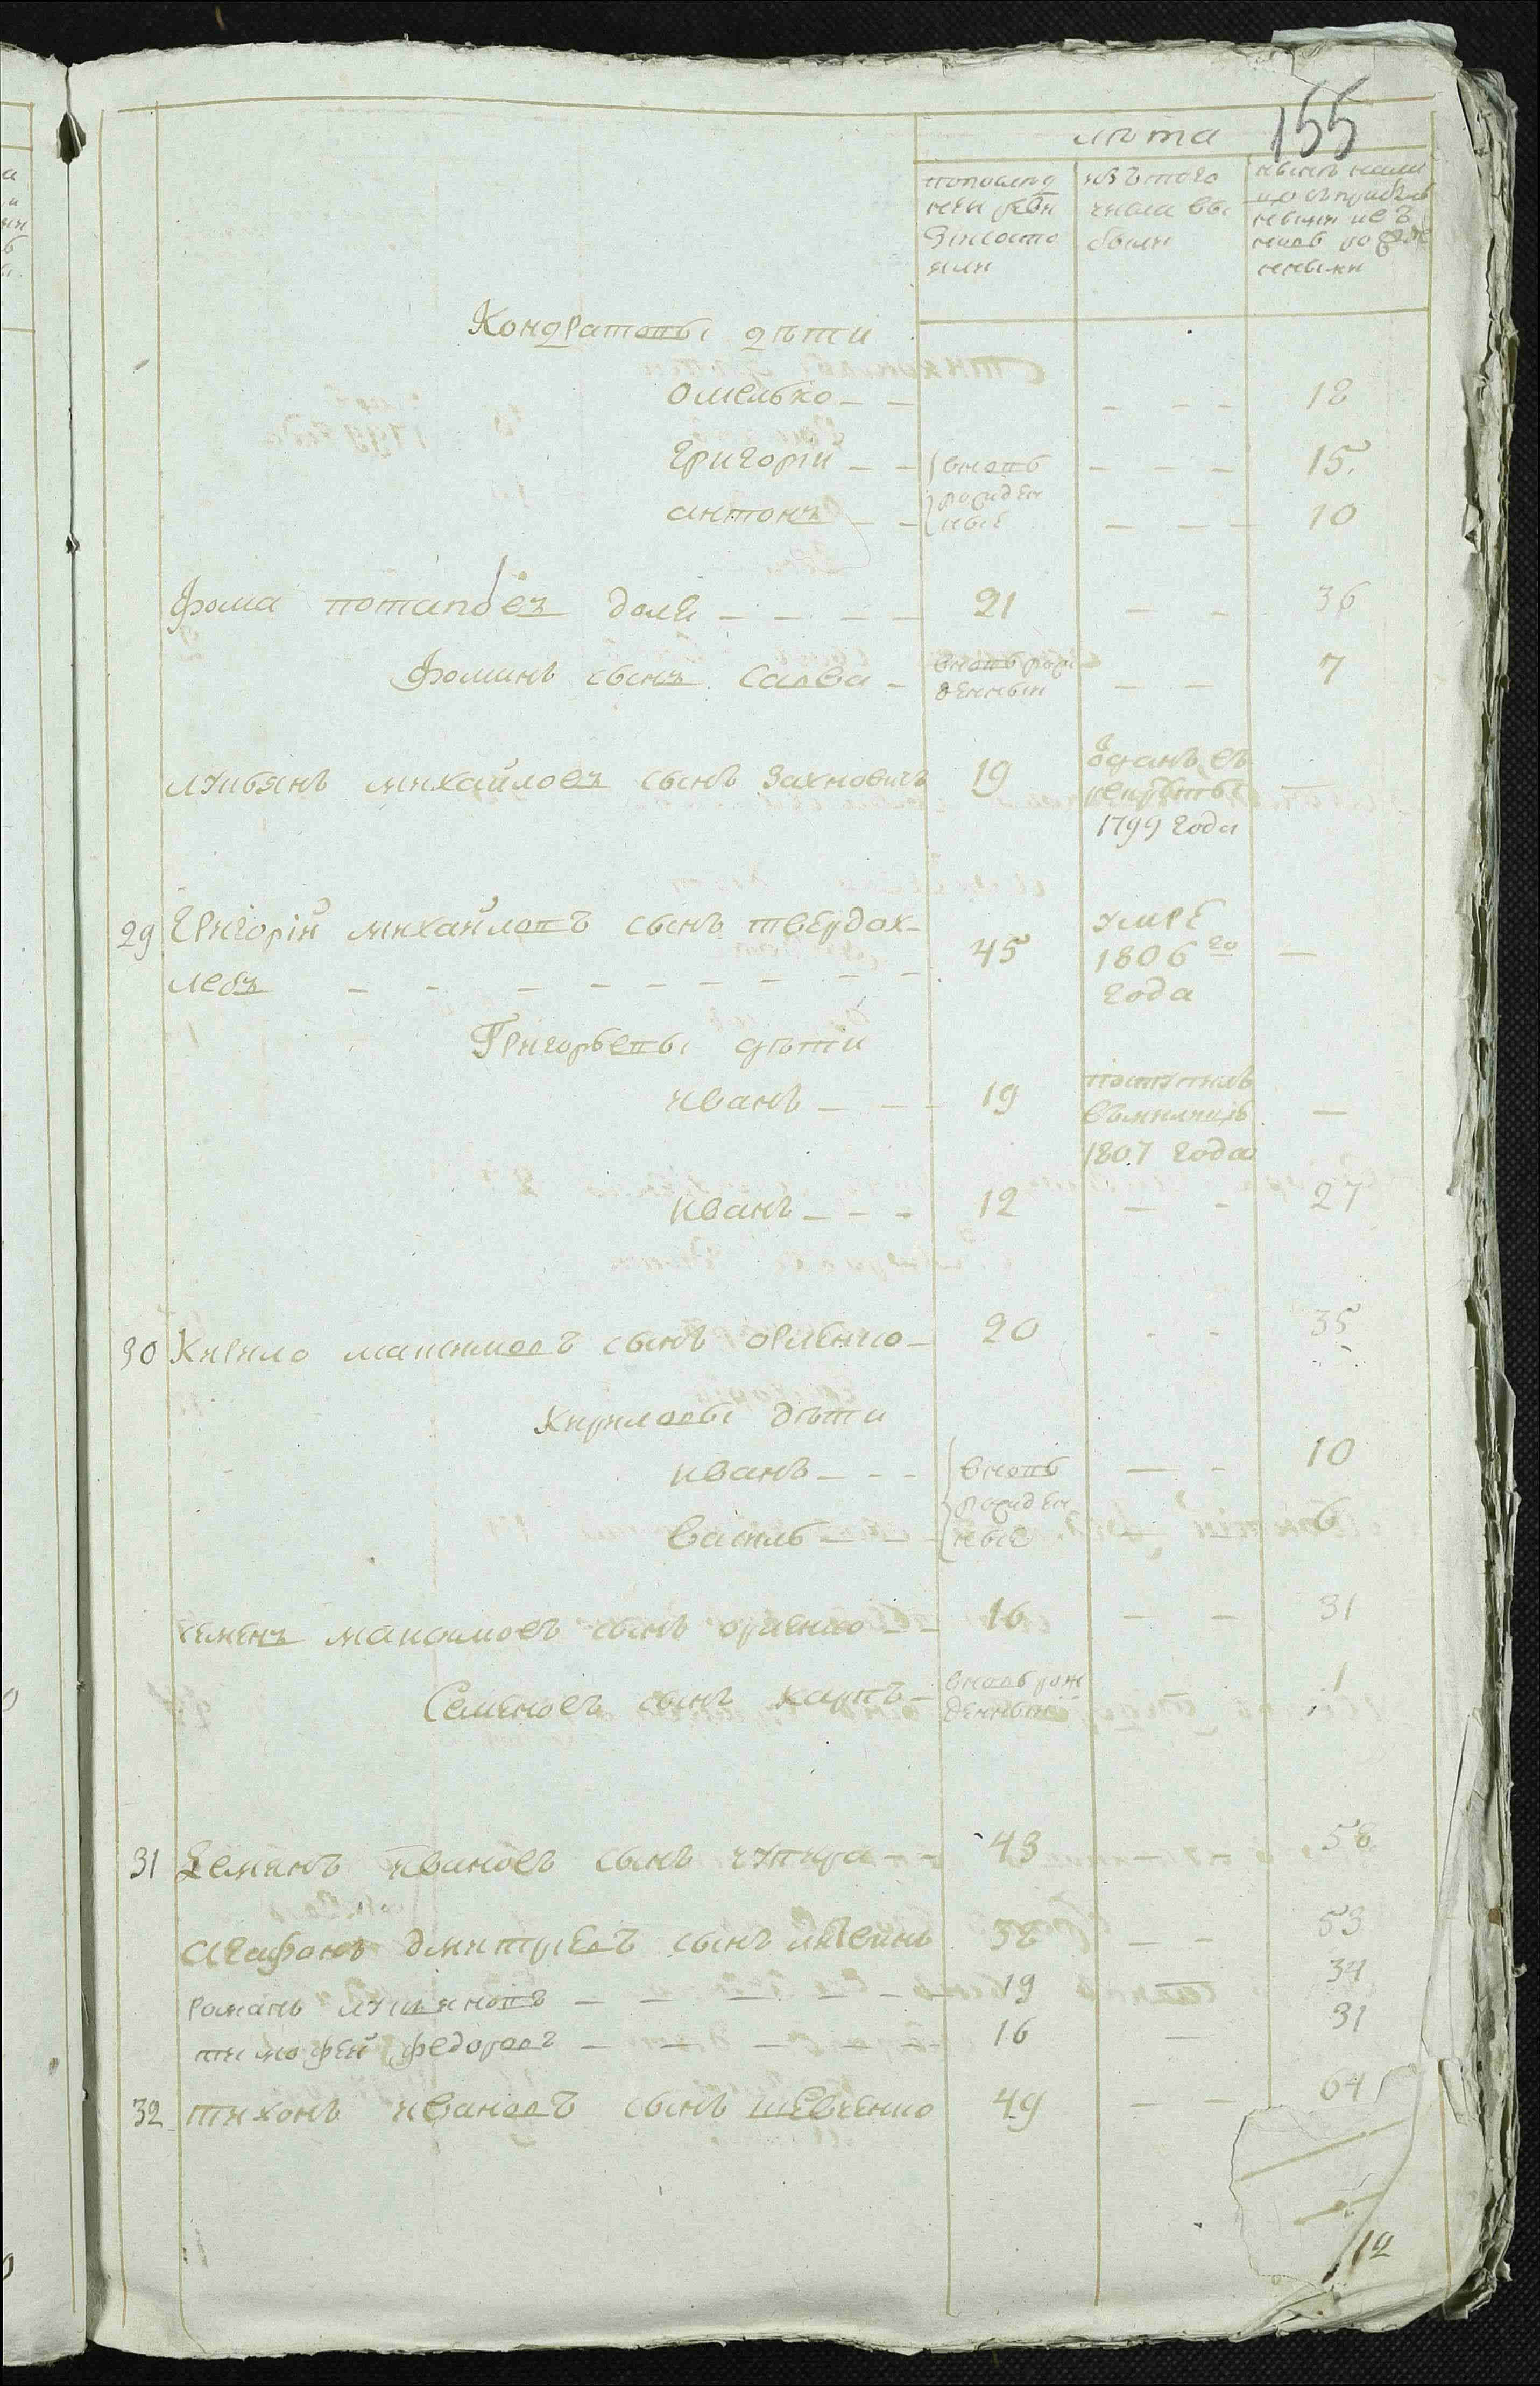 155
лѣта
попослѣд
ней реви
зіи состо
яли
изътого
числа вы
были
нынѣ нали
цо съ прибыль
ными и въ
новь рожде
нными
Кондратовы дѣти
Омелько — — — — — 18
Григорій — — вновь — — — 15.
антонъ — — рожден
ные — — — 10
Фома потаповъ — — — — 21 — — 36
Фоминъ сынъ Савва — вновь рож
денный — — 7
лукьянъ михайловъ сынъ 19 отданъ въ
рекруты —
1799 года
29 Григорій михайловъ сынъ твердох-
лебъ — — — — — — — 45 умре
1806го —
года
Григорьевы дѣти
иванъ — — — 19 поступилъ
въмилицiю —
1807 года
иванъ — — — 12 — — 27
30 Кирило максимовъ сынъ — 20 - - 35
Кириловы дѣти
иванъ — — — вновь — — 10
василь — — — рожден
ные — — 6
семенъ максимовъ сынъ — — 16 — — 31
Семеновъ сынъ карпъ — вновь рож
денный 1
31 Деминъ ивановъ сынъ чупира — — 43 58
Агафонъ дмитріевъ сынъ 38 — — 53
романъ лукьяновъ — — — — — 19 — 34
тимофей федоровъ — — — — — — 16 — 31
32 тихонъ ивановъ сынъ шевченко 49 — — 64